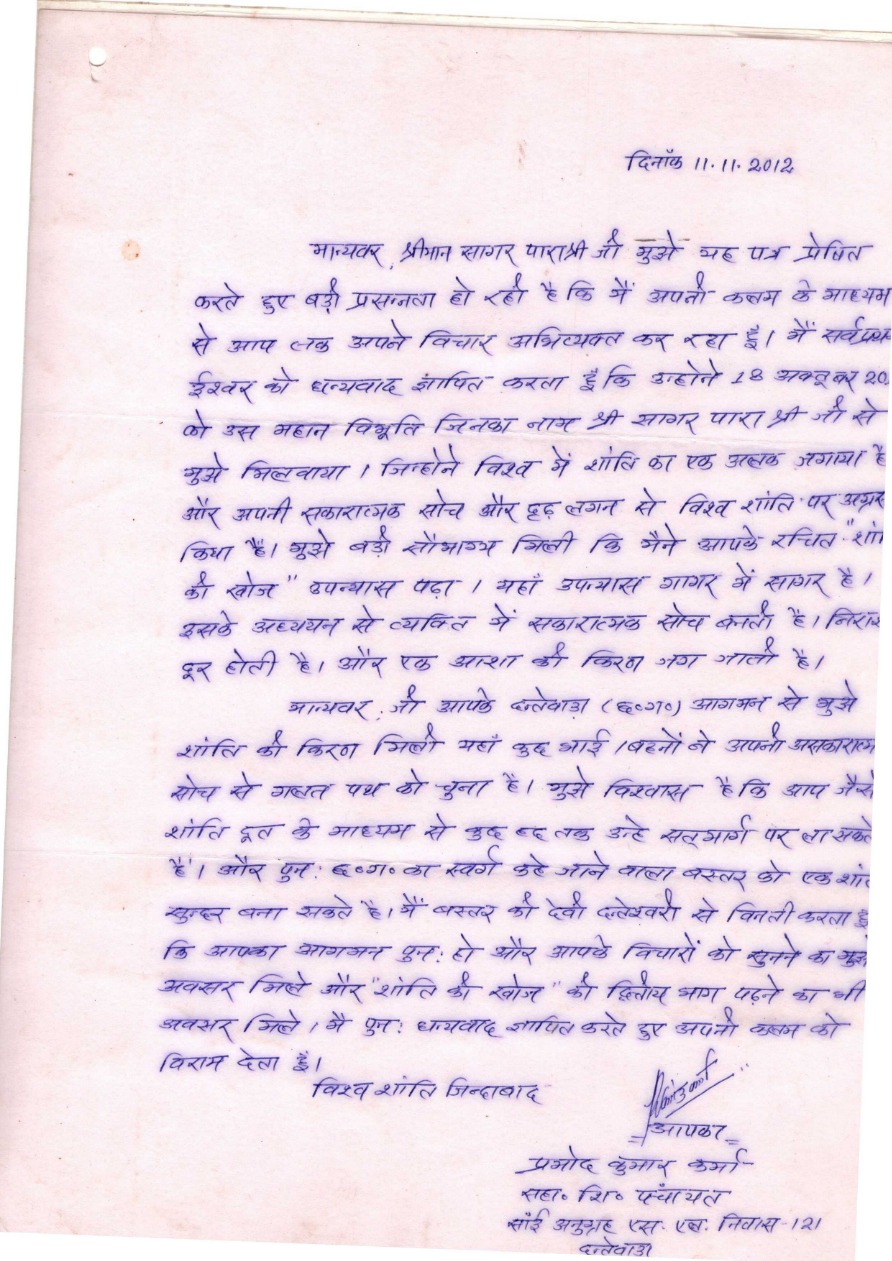 दिनाँक 11.11.2012
मान्यवर, श्रीमान सागर पाराश्री जी मुझे यह पत्र प्रेषित
करते हुए बड़ी प्रसन्नता हो रही है कि मैं अपनी कलम के माध्यम
से आप तक अपने विचार अभिव्यक्त कर रहा हूँ। मैं सर्वप्रथ
ईश्वर को धन्यवाद ज्ञापित करता हूँ कि उन्होने 18 अक्टूबर 20
को उस महान विभूति जिनका नाम श्री सागर पारा श्री जी से
मुझे मिलवाया । जिन्होने विश्व में शांति का एक अलक जगाया है
और अपनी सकारात्मक सोच और दृढ़ लगन से विश्व शांति पर अग्रस
किया है। मुझे बड़ी सौभाग्य मिली कि मैने आपके रचित "शां
की खोज" उपन्यास पढ़ा । यहाँ उपन्यास गागर में सागर है ।
इसके अध्ययन से व्यक्ति में सकारात्मक सोच बनती है। निराश
दूर होती है। और एक आशा की किरण जग जाती है।
मान्यवर, जी आपके दन्तेवाड़ा (छ०ग०) आगमन से मुझे
शांति की किरण मिली यहाँ कुछ भाई । बहनों ने अपनी असकारात्म
सोच से गलत पथ को चुना है। मुझे विश्वास है कि आप जैसे
शांति दूत के माध्यम से कुछ हद तक उन्हे सत्मार्ग पर ला सकते
है। और पुन: छ०ग० का स्वर्ग कहे जाने वाला बस्तर को एक शांत
सुन्दर बना सकते है। मैं बस्तर की देवी दन्तेश्वरी से विनती करता हूँ
कि आपका आगमन पुन: हो और आपके विचारों को सुनने का मुझे
अवसर मिले और "शांति की खोज" की द्वितीय भाग पढ़ने का भी
अवसर मिले । मै पुन: धन्यवाद ज्ञापित करते हुए अपनी कलम को
विराम देता हूँ।
विश्व शांति जिन्दाबाद
आपका
प्रमोद कुमार कर्मा
सहा० शि० पंचायत
सांई अनुग्रह एस. एल. निवास-121
दन्तेवाड़ा